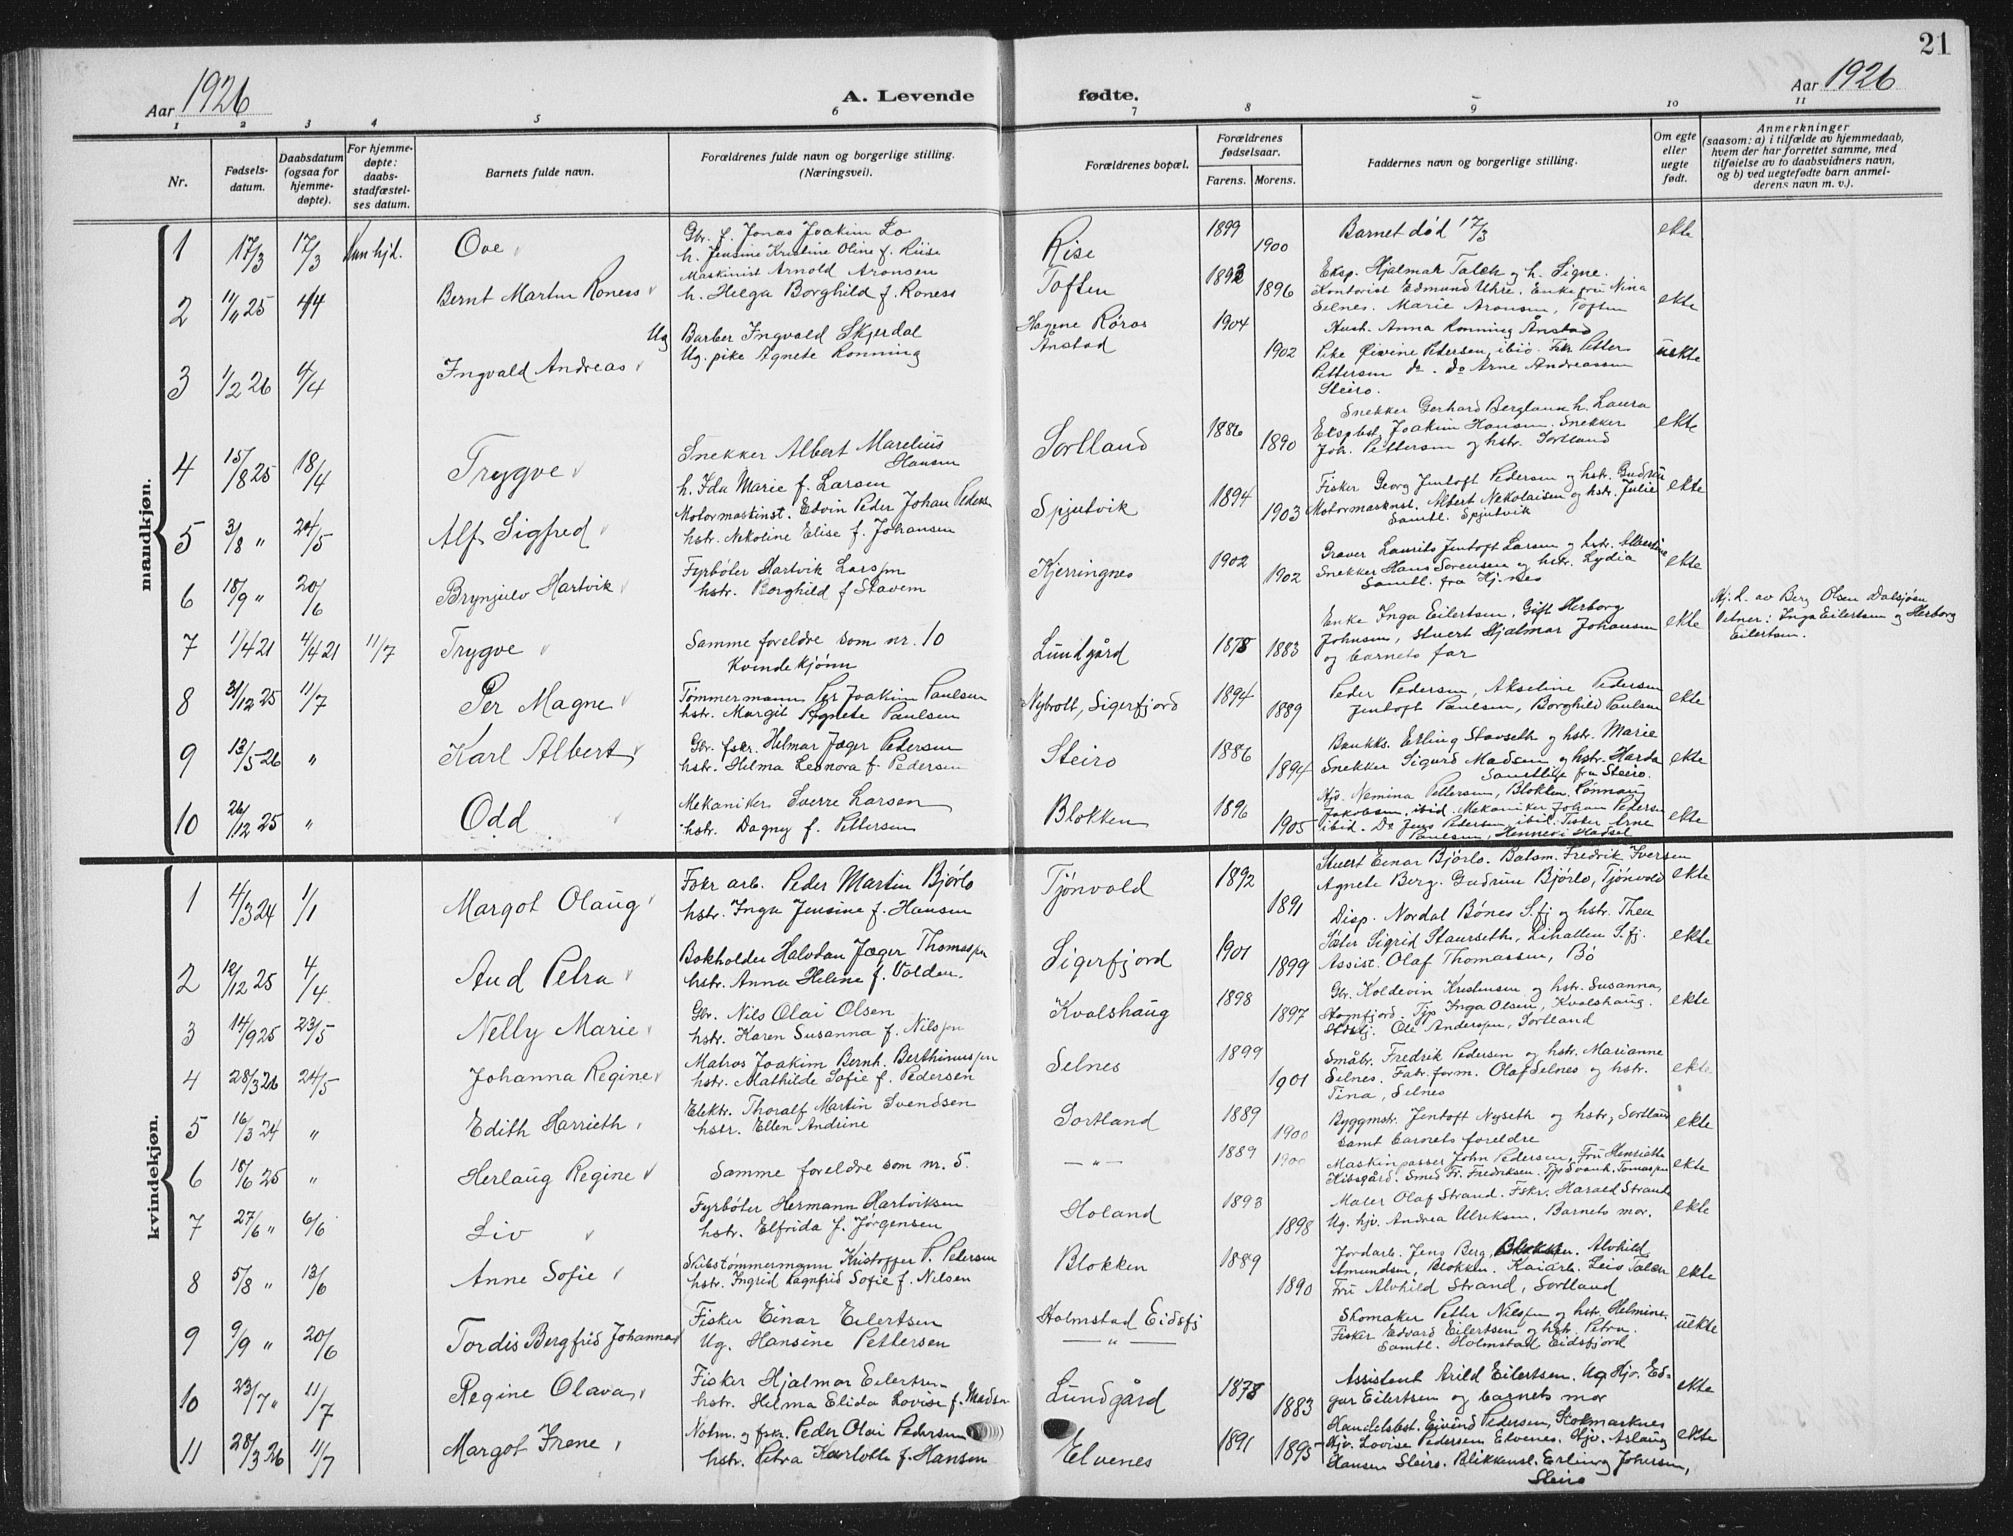 21
Aar 1926
A. Levende fødte.
Aar 1926
1 2 3 4 5 6 7 8 9 10 11
Nr.
Fødsels-
datum.
Daabsdatum
(ogsaa for
hjemme-
døpte).
For hjemme-
døpte:
daabs-
stadfæstel-
ses datum.
Barnets fulde navn.
Forældrenes fulde navn og borgerlige stilling.
(Næringsvei).
Forældrenes bopæl.
Forældrenes
fødselsaar.
Farens. Morens.
Faddernes navn og borgerlige stilling.
Om egte
eller
uegte
født.
Anmerkninger
(saasom: a) i tilfælde av hjemmedaab,
hvem der har forrettet samme, med
tilføielse av to daabsvidners navn,
og b) ved uegtefødte barn anmel-
derens navn m. v.).
mandkjøn.
1 17/3 17/3 Kun hjd. Ove
Gbr. f. Jonas Joakim Lo
h. Jensine Kristine Oline f. Riise
Rise 1899 1900
Barnet død 17/3
ekte
2 11/11 25 4/4 Bernt Martin Roness
Maskinist Arnold Aronsen
h. Helga Borghild f. Roness
Toften 1893 1896
Eksp. Hjalmar Talck og h. Signe.
Kontorist Edmund Uhre. Enkefru Nina
Selnes. Marie Aronsen, Toften
ekte
3 1/2 26 4/4 Ingvald Andreas
Ug Barber Ingvald Skjerdal
Ug. pike Agnete Rønning
Hagene Røros
Ånstad 1904 1902
Hust. Anna Rønning Ånstad
Pike Eivine Pedersen, ibid. Fskr Petter
Pettersen do. do Arne Andreassen
Steiro.
uekte
4 15/8 25 18/4 Trygve
Snekker Albert Marelius
Hansen
h. Ida Marie f. Larsen
Sortland 1886 1890
Snekker Gerhard Berglaun h. Laura
Ekspbet. Joakim Hansen. Snekker
Joh. Pettersen og hstr. Sortland
ekte
5 31/8 " 24/5 Alf Sigfred
Motormaskinst. Edvin Peder Johan Pedersen
hstr. Nekoline Elise f. Johansen
Spjutvik 1894 1903
Fisker Georg Jentoft Pedersen og hstr. Gudrun
Motormaskinst. Albert Nekolaisen og hstr. Julie
Samtl. Spjutvik
ekte
6 18/9 " 20/6 Brynjulv Hartvik
Fyrbøter Hartvik Larssen
hstr. Borghild f Stavem
Kjerringnes 1902 1902
Graver Laurits Jentoft Larsen og hstr. Albertine
Snekker Hans Sørensen og hstr. Lydia
Samtl. fra Kj.nes
ekte
7 11/4 21 4/4 21 11/7 Trygve
Samme foreldre som nr. 10
Kvindekjønn
Lundgård 1878 1883
Enke Inga Eilertsen, Gift Herborg
Johnsen, Stuert Hjalmar Johansen
og barnets far
ekte
Hj. d. av Berg Olsen Dalsjøen
Vitner: Inga Eilertsen og Herborg
Eilertsen.
8 31/12 25 11/7 Per Magne
Tømmermann Per Joakim Paulsen
hstr. Margit Agnete Paulsen
Nybrott, Sigerfjord 1894 1889
Peder Pedersen, Akseline Pedersen
Jentoft Paulsen, Borghild Paulsen
ekte
9 13/5 26 " Karl Albert
Gbr. fskr. Helmar Jæger Petersen
hstr. Helma Leonora f Pedersen
Steiro 1886 1894
Bankks. Erling Stavseth og hstr. Marie
Snekker Sigurd Madsen og hstr. Harda
Samtlige fra Steiro.
ekte
10 26/12 25 " Odd
Mekaniker Sverre Larsen
hstr. Dagny f. Pettersen
Blokken 1896 1905
Hjv. Nemina Pettersen, Blokken. Rønnaug
Jakobsen, ibid. Mekaniker Johan Pedersen
ibid. Do Jens Pedersen, ibid. Fisker Arne
Paulsen, Hennes i Hadsel
ekte
kvindekjøn.
1 4/3 24 1/1 Margot Olaug
Fskr arb. Peder Martin Bjørlo
hstr. Inga Jensine f. Hansen
Tjønvold 1892 1891
Stuert Einar Bjørlo. Batsm. Fredrik Iversen
Agnete Berg. Gudrun Bjørlo, Tjønvold
ekte
2 12/12 25 4/4 Aud Petra
Bokholder Halvdan Jæger Thomassen
hstr. Anna Helene f. Volden.
Sigerfjord 1901 1899
Disp. Nordal Bønes S.fj og hstr. Thea
Søster Sigrid Staurseth, Lihallen S.fj.
Assist. Olaf Thomassen, Bø
ekte
3 14/9 25 23/5 Nelly Marie
Gbr. Nils Olai Olsen
hstr. Karen Susanna f. Nilssen
Kvalshaug 1898 1897
Gbr. Koldevin Kristensen og hstr. Susanna,
Hognfjord. Tjp Inga Olsen, Kvalshaug.
Stdstj. Ole Anderssen, Sortland
ekte
4 28/3 26 24/5 Johanna Regine
Matros Joakim Bernh. Berthinussen
hstr. Mathilde Sofie f. Pedersen
Selnes 1899 1901
Småbr. Fredrik Pedersen og hstr. Marianne
Selnes. Fabr.form. Olaf Selnes og hstr.
Tina, Selnes
ekte
5 16/3 24 " Edith Harrieth
Elektr. Thoralf Martin Svendsen
hstr. Ellen Andrine
Sortland 1889 1900
Byggmstr. Jentoft Nyseth og hstr, Sortland
samt barnets foreldre
ekte
6 18/6 25 " Herlaug Regine
Samme foreldre som nr. 5.
— " — 1889 1900
Maskinpasser John Pedersen, Fru Henriette
Hibsgård. Smed Fr. Fredriksen. Tjp Svanh. Tomassen
ekte
7 27/6 " 6/6 Liv
Fyrbøter Hermann Hartviksen
hstr. Elfrida f. Jørgensen
Holand 1893 1898
Maler Olaf Strand. Fskr. Harald Strand
Ug. hjv. Andrea Ulriksen. Barnets mor.
ekte
8 5/8 " 13/6 Anne Sofie
Skibstømmermann Kristoffer P. Petersen
hstr. Ingrid Ragnfrid Sofie f. Nilsen
Blokken 1889 1890
Jordarb. Jens Berg, Blokken. Alvhild
Amundsen, Blokken. Kaiarb. Leis Talen
Fru Alvhild Strand, Sortland
ekte
9 9/9 " 20/6 Tordis Bergfrid Johanna
Fisker Einar Eilertsen
Ug. Hansine Pettersen
Holmstad Eidsfj
— " —
Skomaker Petter Nilssen og hstr. Helmine.
Fisker Edvard Eilertsen og hstr. Petra.
Samtl. Holmstad Eidsfjord
uekte
10 23/7 " 11/7 Regine Olava
Fisker Hjalmar Eilertsen
hstr. Helma Elida Lovise f. Madsen
Lundgård 1878 1883
Assistent Arild Eilertsen. Ug Hjv. Ed-
gar Eilertsen og barnets mor
ekte
11 28/3 26 11/7 Margot Irene
Notm. og fskr. Peder Olai Pedersen
hstr. Petra Karlotte f. Hansen
Elvenes 1891 1895
Handelsbest. Eivind Pedersen, Stokmarknes
Hjv. Lovise Pedersen Elvenes. Hjv. Aslaug
Hansen Steiro. Blikkensl. Erling Johnsen,
Steiro
ekte